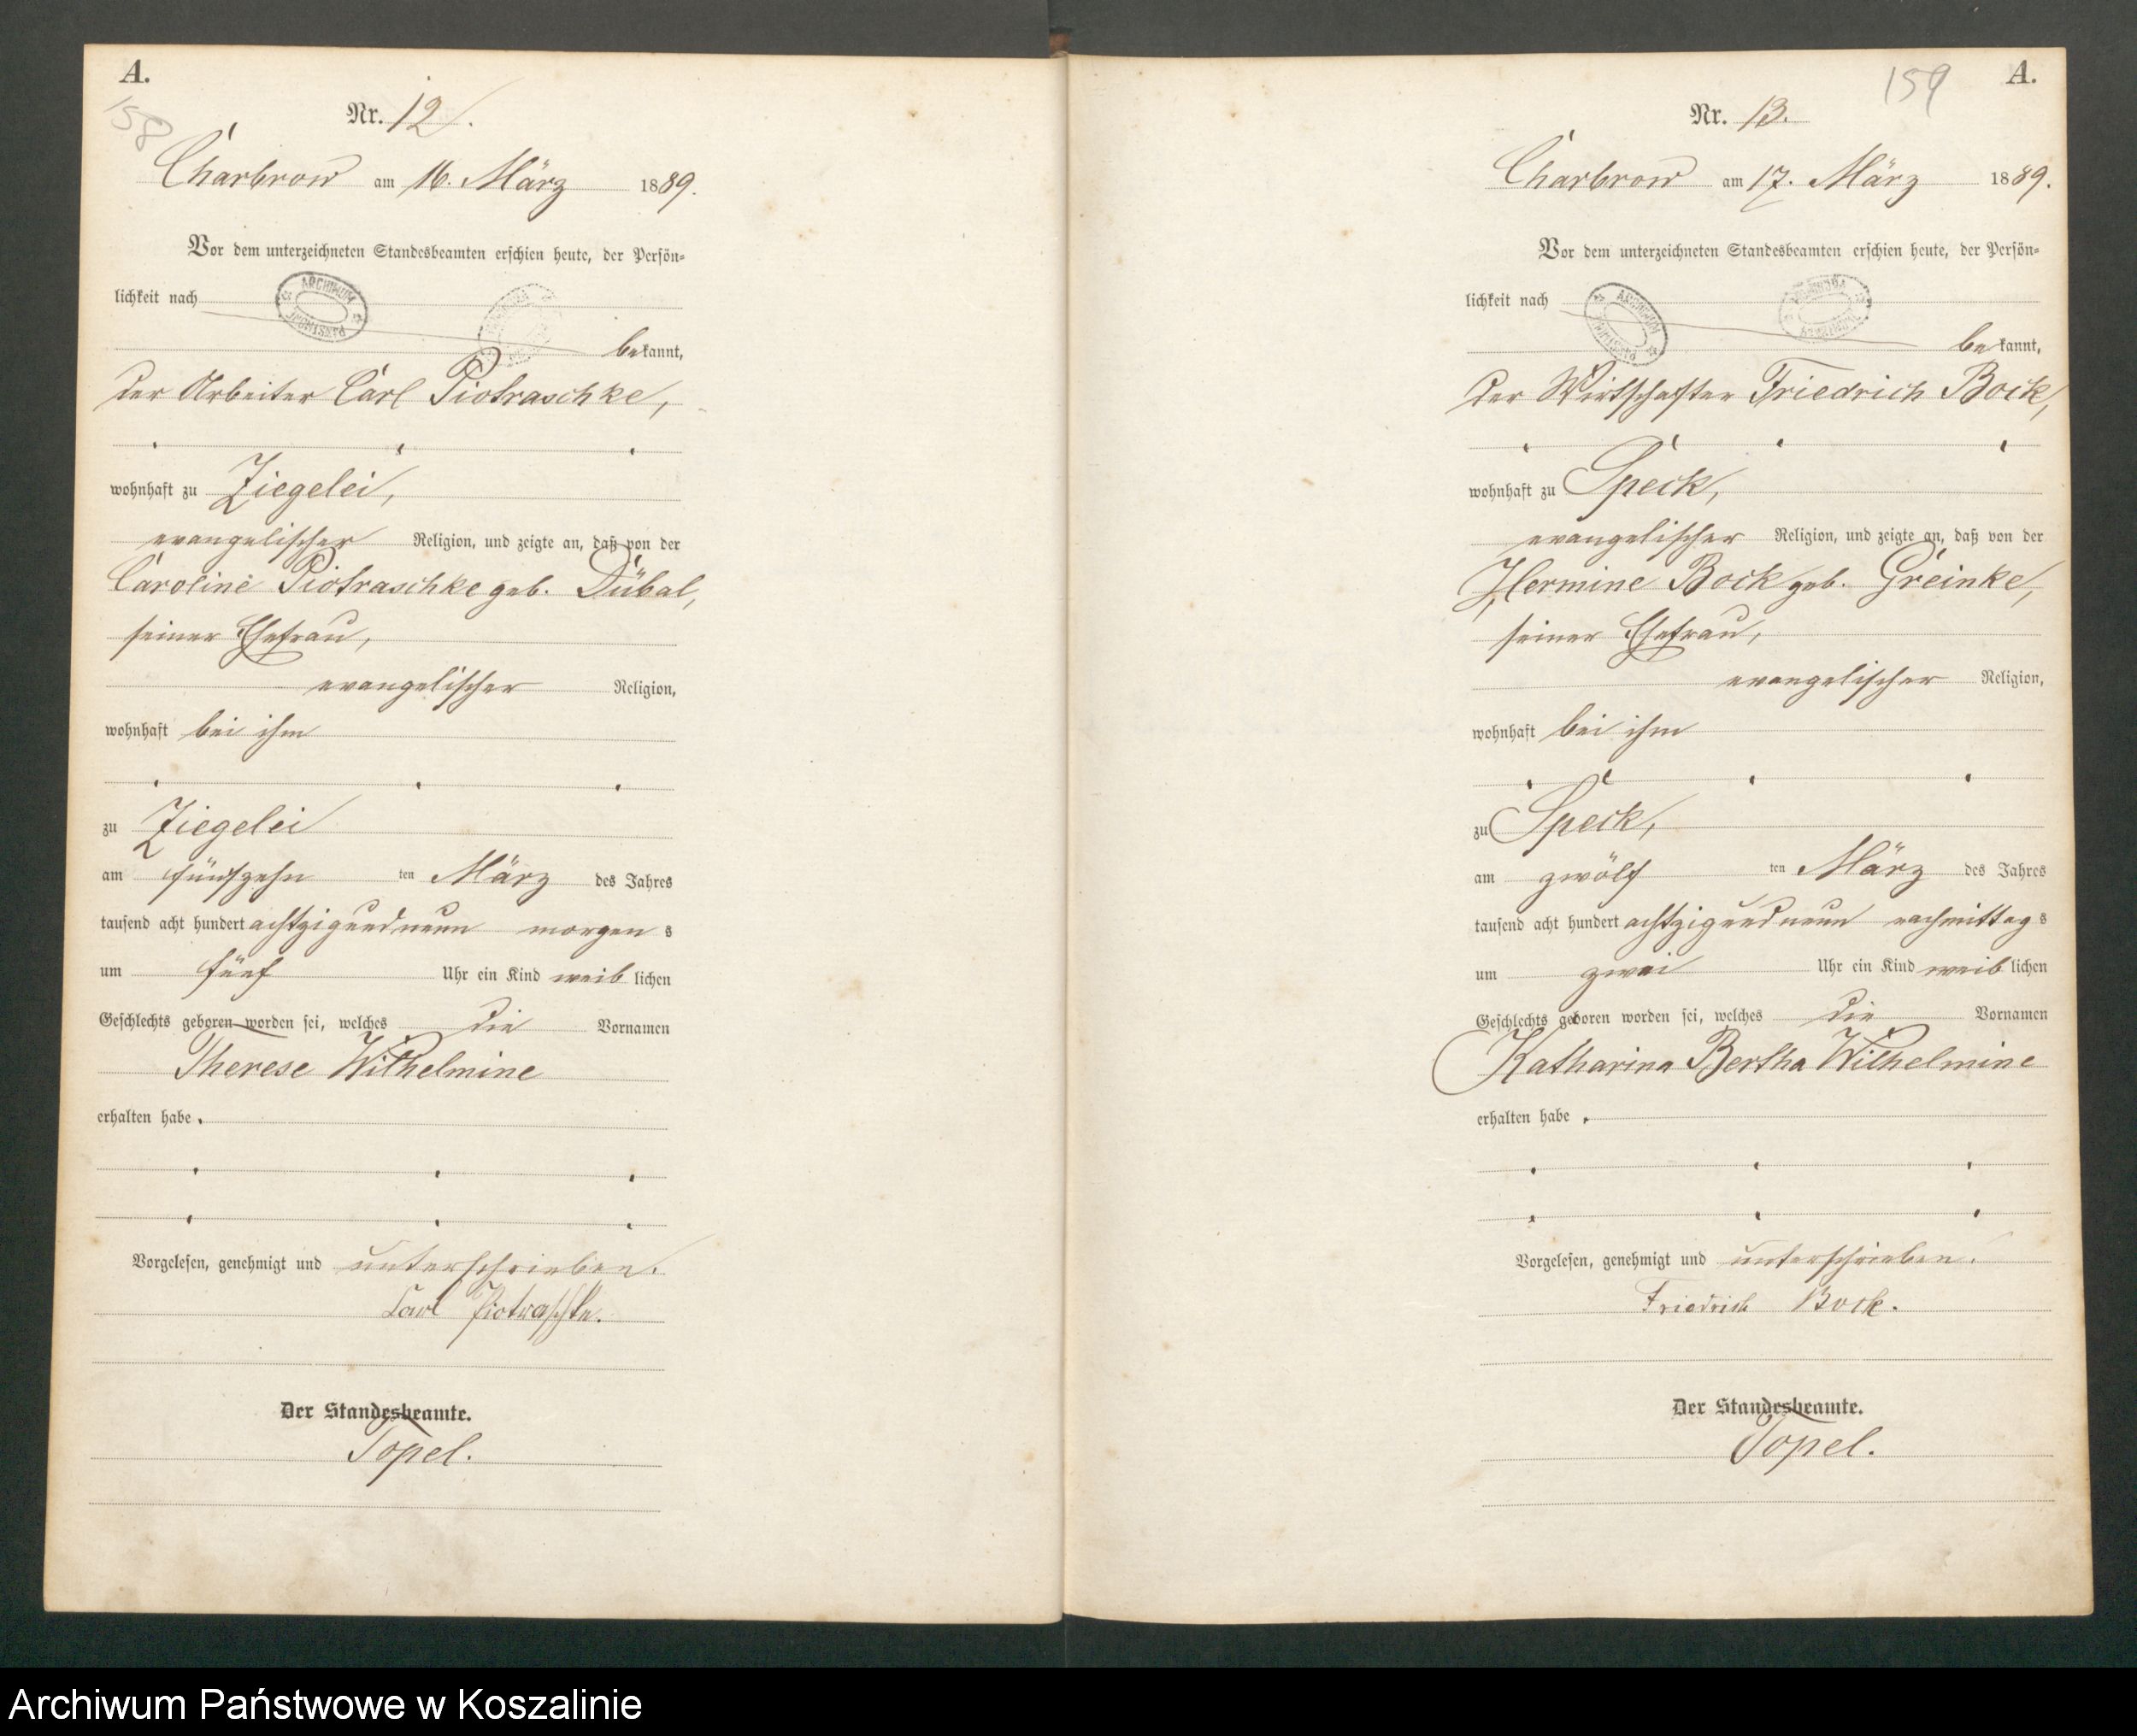 A.
158
Nr. 12.
Charbrow am 16. März 1889.
Vor dem unterzeichneten Standesbeamten erschien heute, der Persön-
lichkeit nach
ARCHIWUM
bekannt,
der Arbeiter Carl Piotraschke,
wohnhaft zu Ziegelei,
evangelischer Religion, und zeigte an, daß von der
Caroline Piotraschke geb. Dübal,
seiner Ehefrau,
evangelischer Religion,
wohnhaft bei ihm
zu Ziegelei
am fünfzehn ten März des Jahres
tausend acht hundert achtzigundneun morgens
um fünf Uhr ein Kind weiblichen
Geschlechts geboren worden sei, welches die Vornamen
Therese Wilhelmine
erhalten habe.
Vorgelesen, genehmigt und unterschrieben.
Carl Piotraschke.
Der Standesbeamte.
Topel.
159
A.
Nr. 13.
Charbrow am 17. März 1889.
Vor dem unterzeichneten Standesbeamten erschien heute, der Persön-
lichkeit nach
ARCHIWUM
bekannt,
der Wirtschafter Friedrich Bock,
wohnhaft zu Speck,
evangelischer Religion, und zeigte an, daß von der
Hermine Bock geb. Greinke,
seiner Ehefrau,
evangelischer Religion,
wohnhaft bei ihm
zu Speck,
am zwölf ten März des Jahres
tausend acht hundert achtzigundneun nachmittags
um zwei Uhr ein Kind weiblichen
Geschlechts geboren worden sei, welches die Vornamen
Katharina Bertha Wilhelmine
erhalten habe.
Vorgelesen, genehmigt und unterschrieben.
Friedrich Bock.
Der Standesbeamte.
Topel.
Archiwum Państwowe w Koszalinie